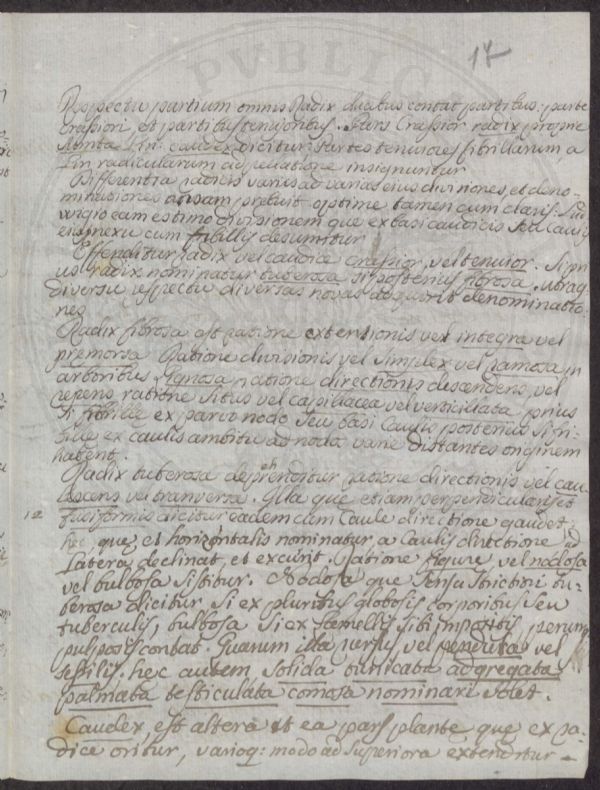 PVBLICA
17
Respectu partium omnis Radix duabus contat partibus: parte
Crassiori et partibus tenuioribus. Pars Crassior radix proprie
Lin: caudex dicitur. Partes tenuiores fibrillarum a
Lin radicularum appellatione insigniuntur
Differentia radicis varias ad varias eius diviniones, et deno-
minationes ansam prebuit optime tamen cum clariss:
eam estimo divisionem que ex basi caudicis seu Caulis
eius nexu cum fribillis desumitur
Effenditur radix vel caudice Crassior, vel tenuior. Si pri
us radix nominatur tuberosa si posterius fibrosa, utraq
diverso respectu diversas novas adquirit denominatio
nes
Radix fibrosa est ratione extensionis vel integra vel
premorsa Ratione divisionis vel simplex vel Ramosa in
arboribus Lignosa ratione directionis descendens, vel
repens ratione situs vel capillacea vel verticillata, prius
si fibrillæ ex parvo nodo seu basi Caulis posterius si fri
bille ex caulis ambitu ad noda varie distantes originem
habent.
Radix tuberosa deprehenditur ratione directionis vel cau
dascens vel tranversa. Illa que etiam perpendicularis et
12 fusiformis dicitur eadem cum Caule directione gaudet:
hec, que et horizontalis nominatur, a Caulis directione ad
Latera declinat, et excurit. Ratione figure, vel nodosa
vel bulbosa sistitur. Nodosa que sensu strictiori tu-
berosa dicitur si ex pluribus globosis corporibus seu
tuberculis, bulbosa si ex lamellis sibi impositis, perum
pulposis contat. Quarum illa versus vel pendula vel
sessilis: hec autem solida tunicata adgregata
palmata testiculata comosa nominari solet.
Caudex, est altera et ea pars plante que ex ra-
dice oritur, varioq: modo ad superiora extenditur